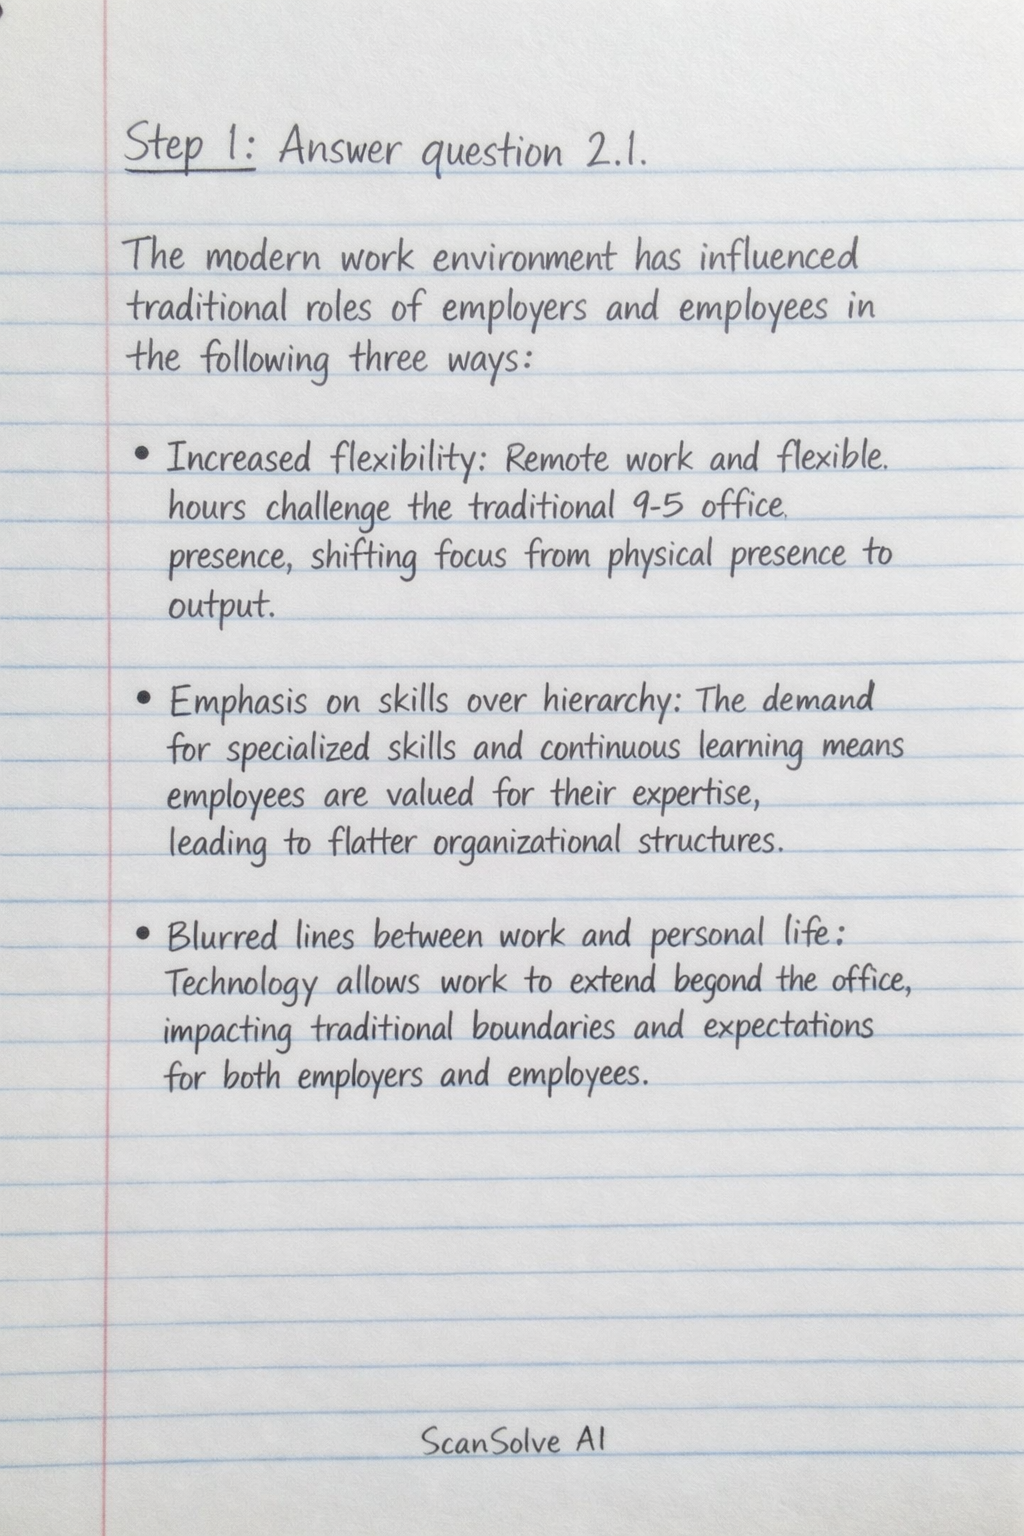 Step 1: Answer question 2.1.
The modern work environment has influenced
traditional roles of employers and employees in
the following three ways:
• Increased flexibility: Remote work and flexible.
hours challenge the traditional 9-5 office.
presence, shifting focus from physical presence to
output.
• Emphasis on skills over hierarchy: The demand
for specialized skills and continuous learning means
employees are valued for their expertise,
leading to flatter organizational structures.
• Blurred lines between work and personal life:
Technology allows work to extend begond the office,
impacting traditional boundaries and expectations
for both employers and employees.
ScanSolve AI